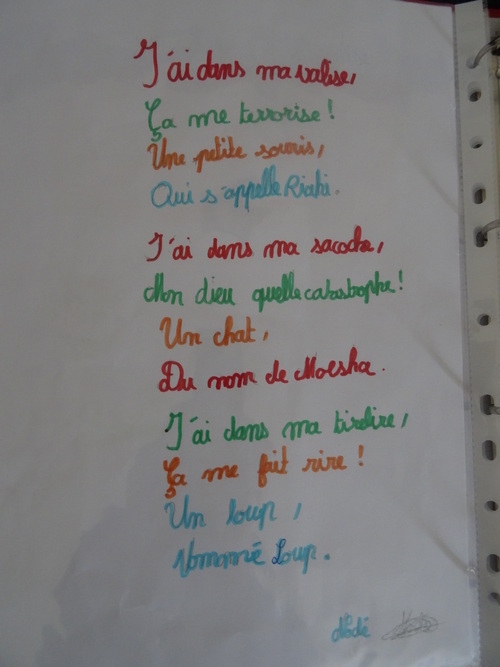 J'ai dans ma valise,
Ça me terrorise !
Une petite souris,
Qui s'appelle
J'ai dans ma sacoche,
Mon dieu quelle catastrophe !
Un chat,
Du nom de Moesha.
J'ai dans ma tirelire,
Ça me fait rire !
Un loup,
Nommé Loup.